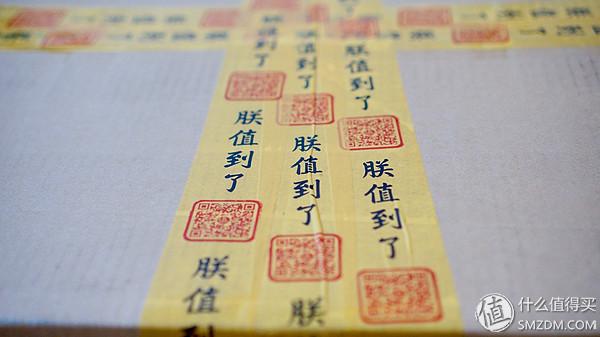 朕值到了
朕值到了
朕值到
值到了
朕值到了
朕
了
朕值到了
朕值到了
值 什么值得买
SMZDM.COM